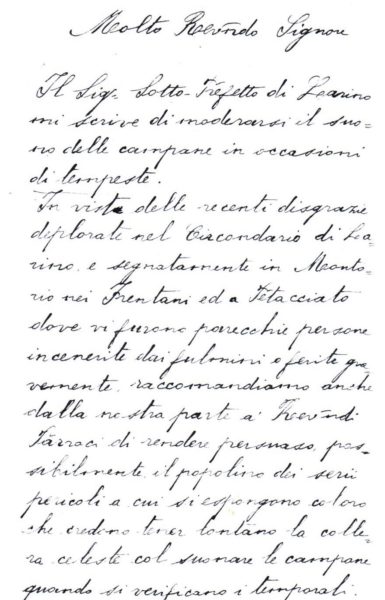 Molto Revm̃do Signore
Il Sig. Sotto-Prefetto di Larino
mi scrive di moderarsi il suo-
no delle campane in occasioni
di tempeste.
In vista delle recenti disgrazie
deplorate nel Circondario di La-
rino, e segnatamente in Monto-
rio nei Frentani ed a Petacciato
dove vi furono parecchie persone
incenerite dai fulmini o ferite gra-
vemente, raccomandiamo anche
dalla nostra parte a' Revm̃di
Parroci di rendere persuaso, pos-
sibilmente, il popolino dei serii
pericoli a cui si espongono coloro
che credono tener lontano la colle-
ra celeste col suonare le campane
quando si verificano i temporali.